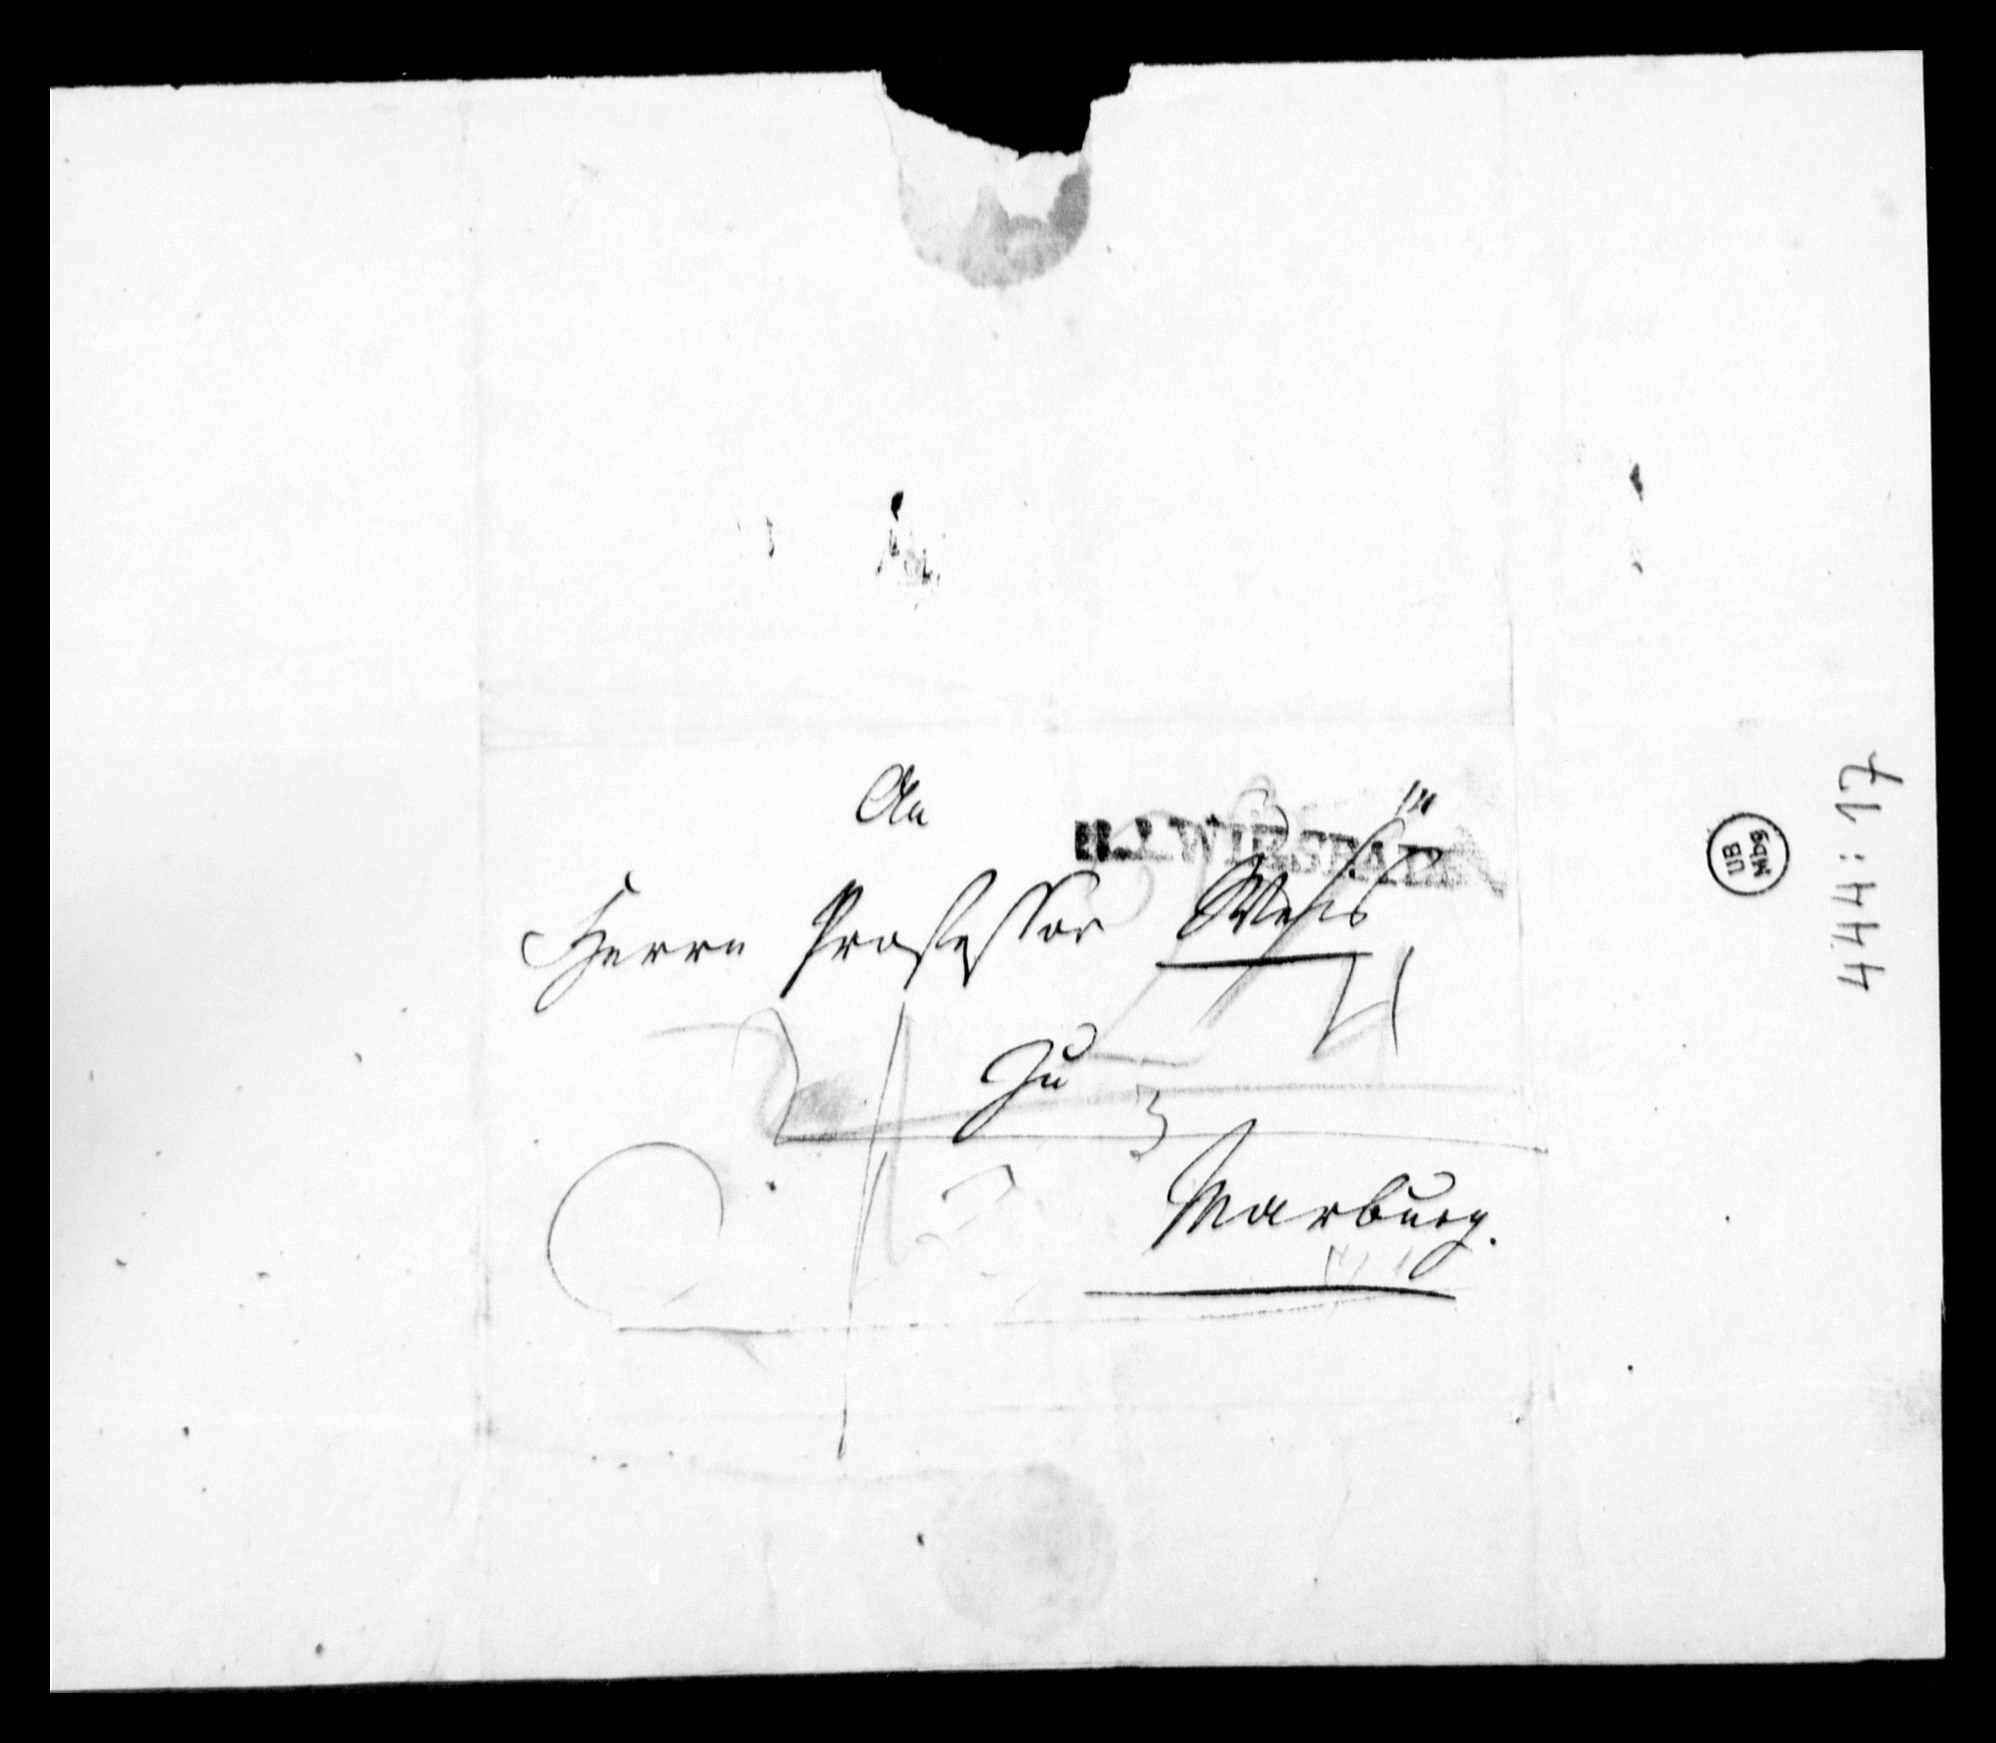 An
R.1.WIESBADEN
Herrn Professor Weis
zu
Marburg.
UB
Mbg
444:17